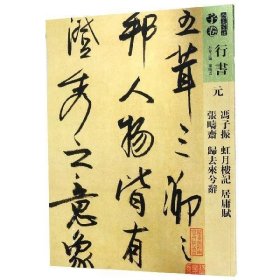 行書
元
馮子振 虹月樓記 居庸賦
張疇齋 歸去來兮辭
五茸三泖之
邦人物皆有
澄秀之意象